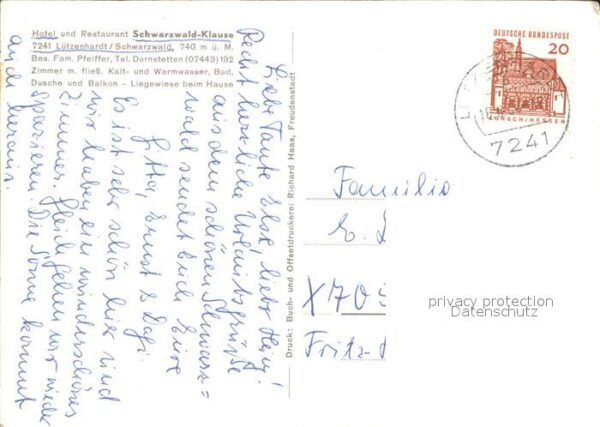 Hotel und Restaurant Schwarzwald-Klause
7241 Lützenhardt/Schwarzwald, 740 m ü. M.
Bes. Fam. Pfeiffer, Tel. Dornstetten (07443) 192
Zimmer m. fließ. Kalt- und Warmwasser, Bad,
Dusche und Balkon - Liegewiese beim Hause
Liebe Tante Else, lieber Heinz!
Recht herzliche Urlaubsgrüße
aus dem schönen Schwarz=
wald sendet Euch Eure
Jtta, Ernst & Dagi.
Es ist sehr schön hier und
wir haben ein wunderschönes
Zimmer. Gleich gehen wir wieder
spazieren. Die Sonne kommt
auch heraus.
Druck: Buch- und Offsetdruckerei Richard Haas, Freudenstadt
DEUTSCHE BUNDESPOST
20
LORSCH/HESSEN
7241
Familie
E. L
X 705
Fritz-
privacy protection
Datenschutz